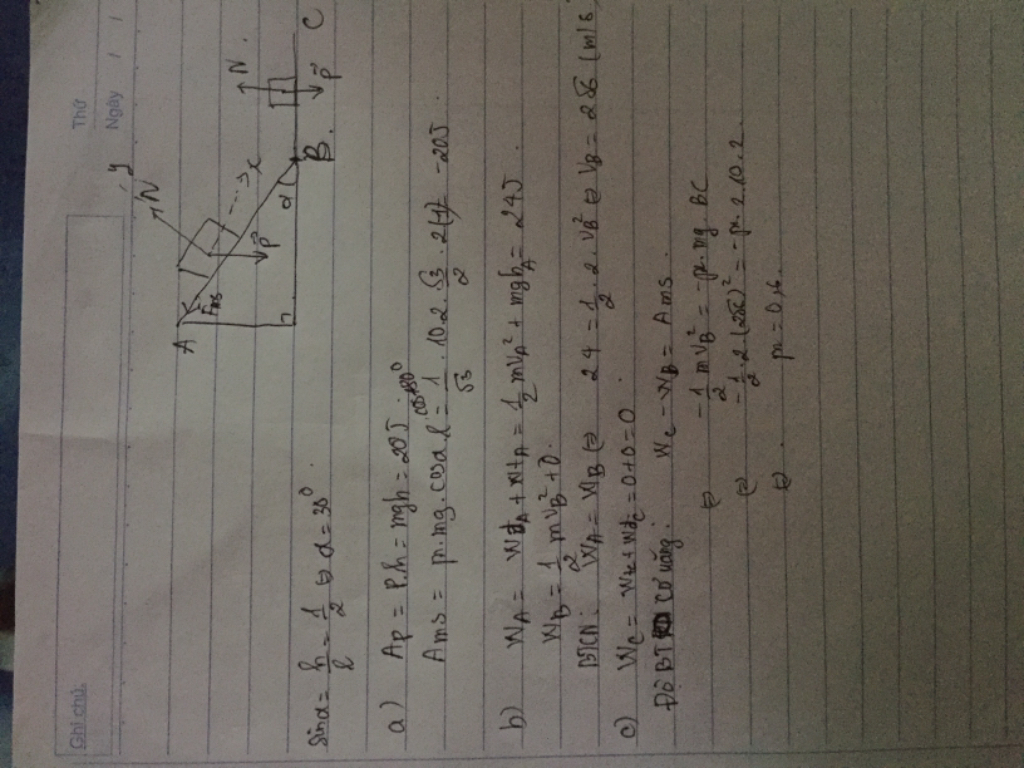 Ghi chú:
Thứ
Ngày / /
y
N
N
A
Fms
x
P
P
α
B
C
sinα = h/l = 1/2 ⇔ α = 30°
a) Ap = P.h = mgh = 20J
Ams = μ.mg.cosα.l.cos180° = 1/√3 . 10.2. √3/2 . 2(-1) = -20J
b) WA = WđA + WtA = 1/2 mvA² + mghA = 24J
WB = 1/2 mvB² + 0.
BTCN: WA = WB ⇔ 24 = 1/2 . 2. vB² ⇔ vB = 2√6 (m/s
c) WC = Wtc + Wđc = 0 + 0 = 0
ĐỊBT cơ năng: WC - WB = Ams.
⇔ -1/2 mvB² = -μ.mg BC
⇔ -1/2 .2 (2√6)² = -μ.2.10.2.
⇔ μ = 0,6.